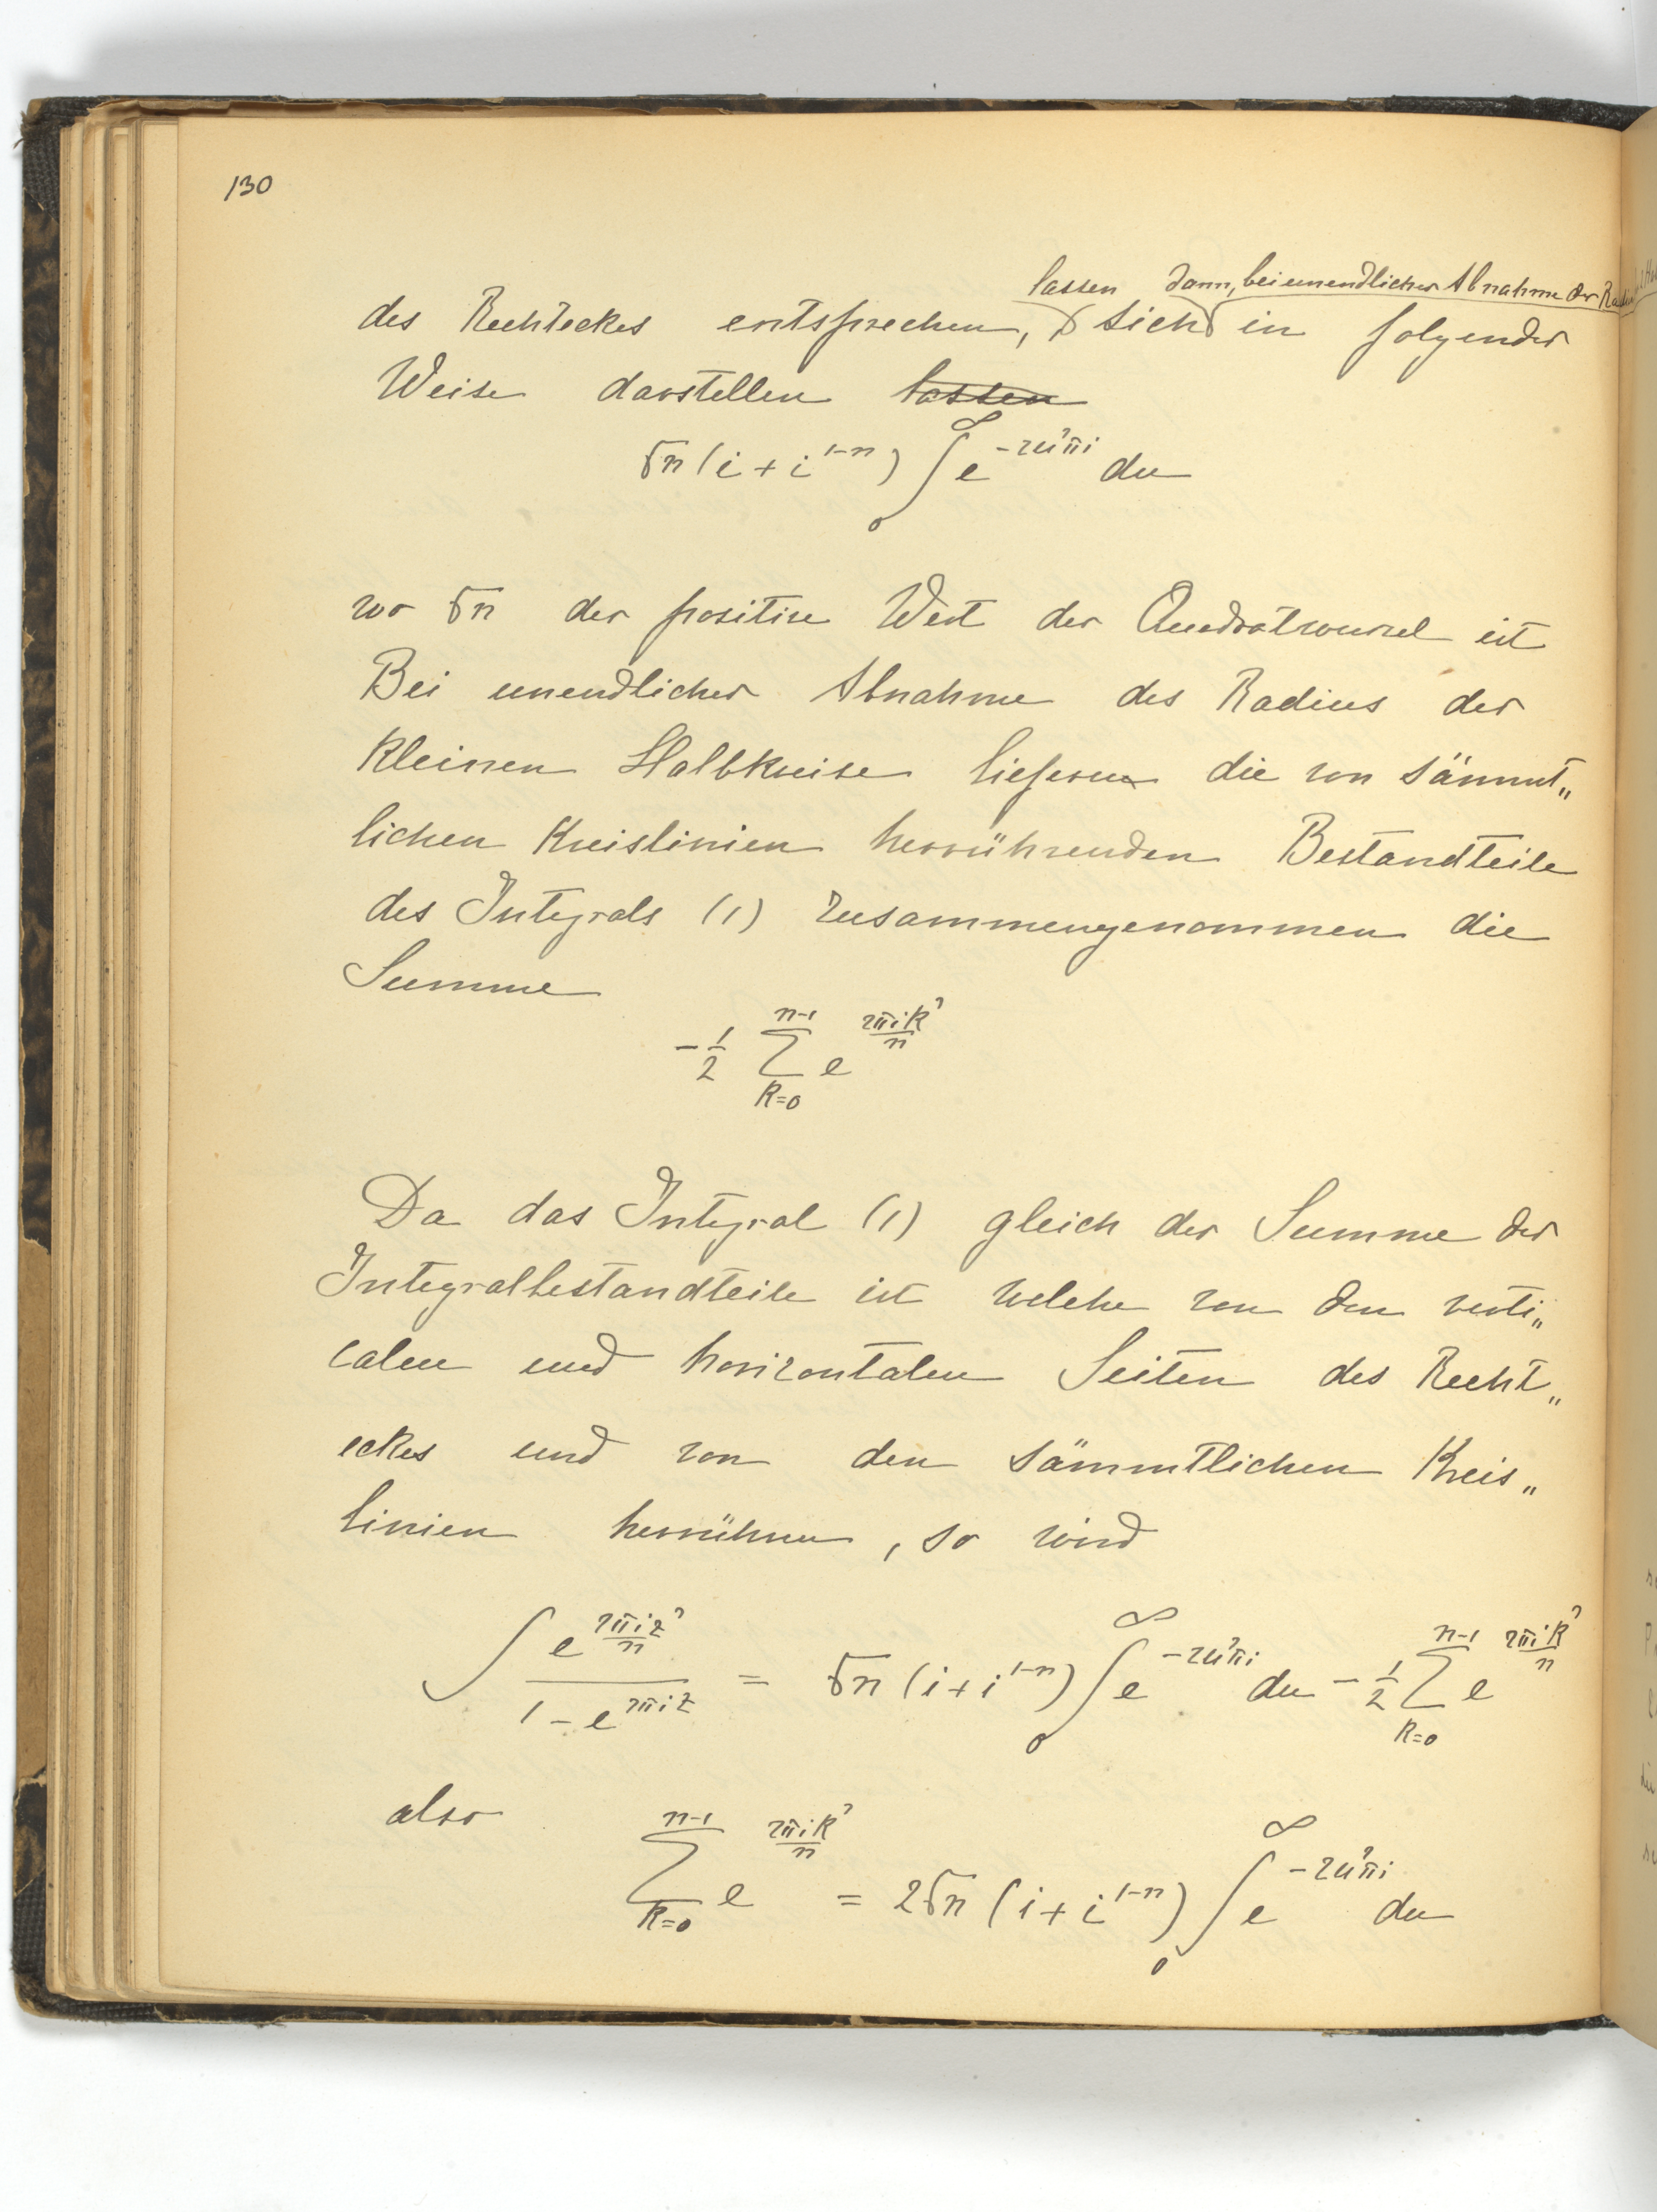 130
lassen dann, bei unendlicher Abnahme der Radien
des Rechteckes entsprechen, sich in folgender
Weise darstellen lassen
√n (i + i^{1-n}) ∫_0^∞ e^{-2u²πi} du
wo √n der positive Wert der Quadratwurzel ist
Bei unendlicher Abnahme des Radius der
kleinen Halbkreise liefern die von sämmt„
lichen Kreislinien herrührenden Bestandteile
des Integrals (1) zusammengenommen die
Summe
-\frac{1}{2} \sum_{k=0}^{n-1} e^{\frac{2πik²}{n}}
Da das Integral (1) gleich der Summe der
Integralbestandteile ist welche von den verti„
calen und horizontalen Seiten des Recht„
eckes und von den sämmtlichen Kreis„
linien herrühren, so wird
∫ \frac{e^{\frac{2πiz²}{n}}}{1 - e^{2πiz}} = √n (i + i^{1-n}) ∫_0^∞ e^{-2u²πi} du - \frac{1}{2} \sum_{k=0}^{n-1} e^{\frac{2πik²}{n}}
also
\sum_{k=0}^{n-1} e^{\frac{2πik²}{n}} = 2√n (i + i^{1-n}) ∫_0^∞ e^{-2u²πi} du